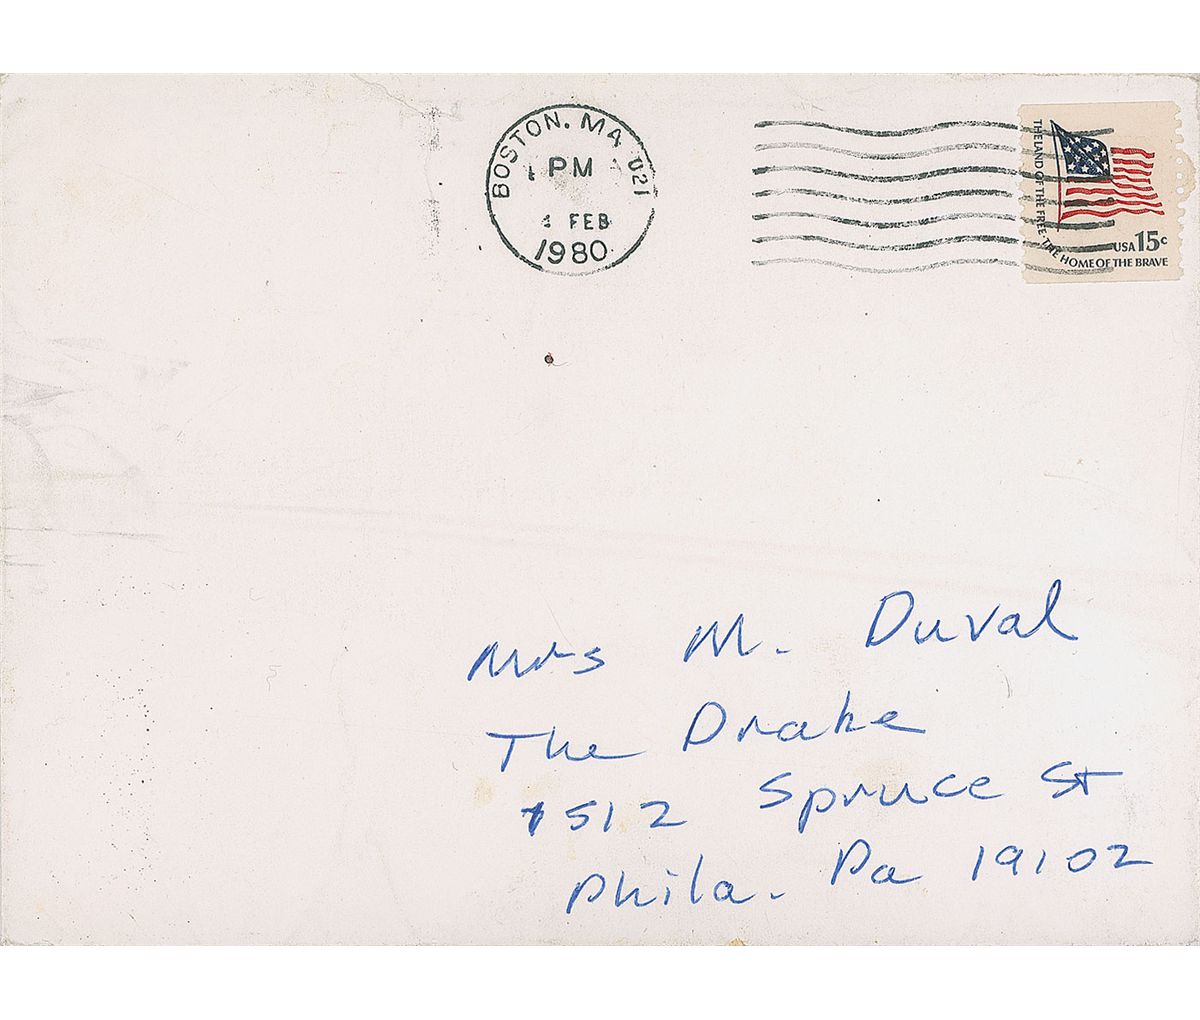 BOSTON, MA 021
PM
FEB
1980
THE LAND OF THE FREE · THE HOME OF THE BRAVE
USA 15c
Mrs M. Duval
The Drake
1512 Spruce St
Phila. Pa 19102